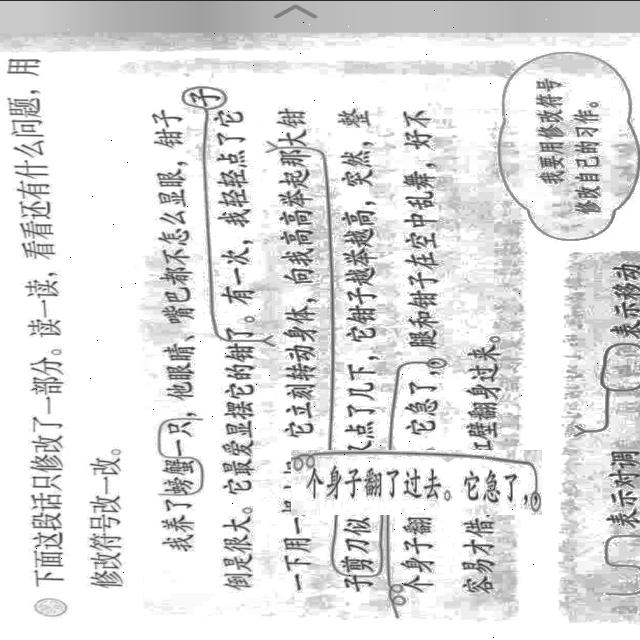 下面这段话只修改了一部分。读一读，看看还有什么问题，用
修改符号改一改。
我养了螃蟹一只，他眼睛、嘴巴都不怎么显眼，钳子
子
倒是很大。它最爱显摆它的钳了。有一次，我轻轻点了它
一下用一 它立刻转动身体，向我高高举起那大钳
子剪刀似 点了几下，它钳子越举越高，突然，整
个身子翻 它急了，腿和钳子在空中乱舞，好不
个身子翻了过去。它急了，
容易才借 壁翻身过来。
我要用修改符号
修改自己的习作。
表示对调 表示移动